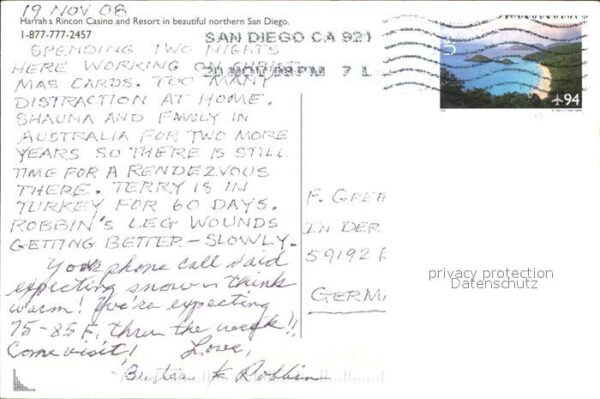 19 NOV 08
Harrah's Rincon Casino and Resort in beautiful northern San Diego.
1-877-777-2457
SAN DIEGO CA 921
20 NOV 08 PM 7 L
US
94
SPENDING TWO NIGHTS
HERE WORKING ON CHRIST
MAS CARDS. TOO MANY
DISTRACTION AT HOME.
SHAUNA AND FAMILY IN
AUSTRALIA FOR TWO MORE
YEARS SO THERE IS STILL
TIME FOR A RENDEZVOUS
THERE. TERRY IS IN
TURKEY FOR 60 DAYS.
ROBBIN'S LEG WOUNDS
GETTING BETTER - SLOWLY.
Your phone call said
expecting snow - think
warm! We're expecting
75-85 F. thru the week!!
Come visit! Love,
& Robbin
F. GRETH
IN DER
59192
GERMA
privacy protection
Datenschutz